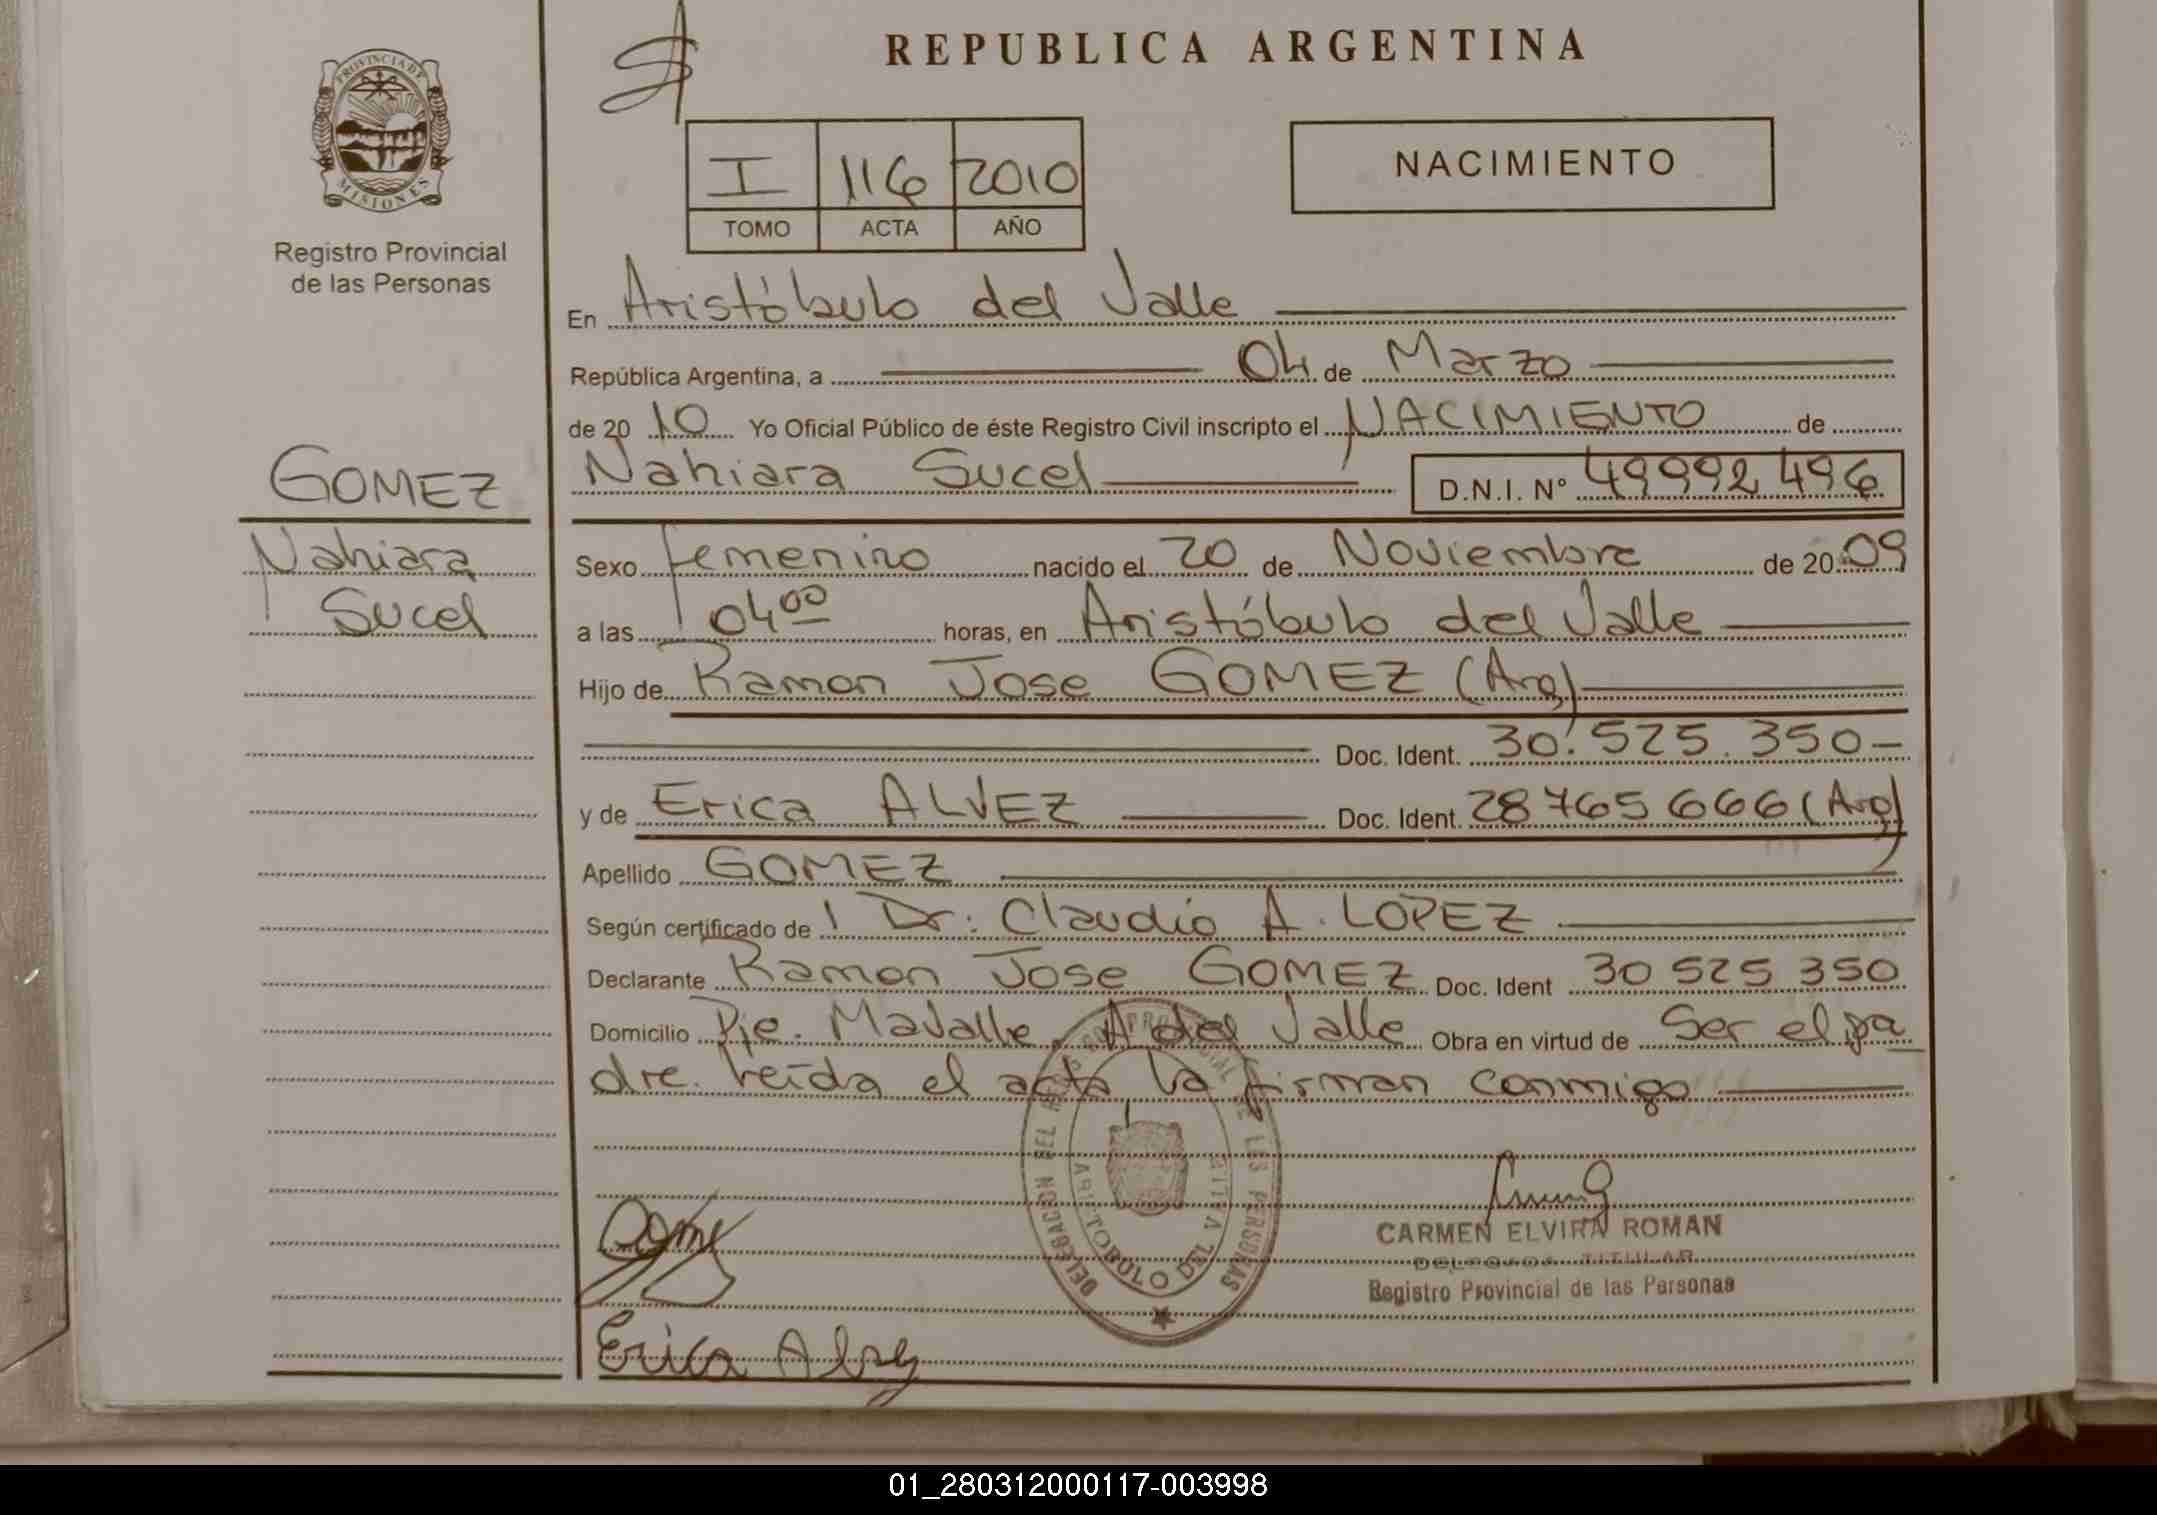 REPUBLICA ARGENTINA
PROVINCIA DE MISIONES
Registro Provincial
de las Personas
I 116 2010
TOMO ACTA AÑO
NACIMIENTO
En Aristóbulo del Valle
República Argentina, a 04 de Marzo
de 2010 Yo Oficial Público de éste Registro Civil inscripto el NACIMIENTO de
GOMEZ
Nahiara Sucel
Nahiara Sucel D.N.I. Nº 49992496
Sexo femenino nacido el 20 de Noviembre de 2009
a las 04 00 horas, en Aristóbulo del Valle
Hijo de Ramon Jose GOMEZ (Arg)
Doc. Ident. 30.525.350-
y de Erica ALVEZ Doc. Ident. 28765666 (Arg)
Apellido GOMEZ
Según certificado de Dr: Claudio A. LOPEZ
Declarante Ramon Jose GOMEZ Doc. Ident 30 525 350
Domicilio Pje. Mavalle. A del Valle Obra en virtud de Ser el pa
dre. leída el acta la firman conmigo
DELEGACION DEL REGISTRO PROVINCIAL DE LAS PERSONAS
ARISTOBULO DEL VALLE
CARMEN ELVIRA ROMAN
DELEGADA TITULAR
Registro Provincial de las Personas
Erica Alvez
01_280312000117-003998